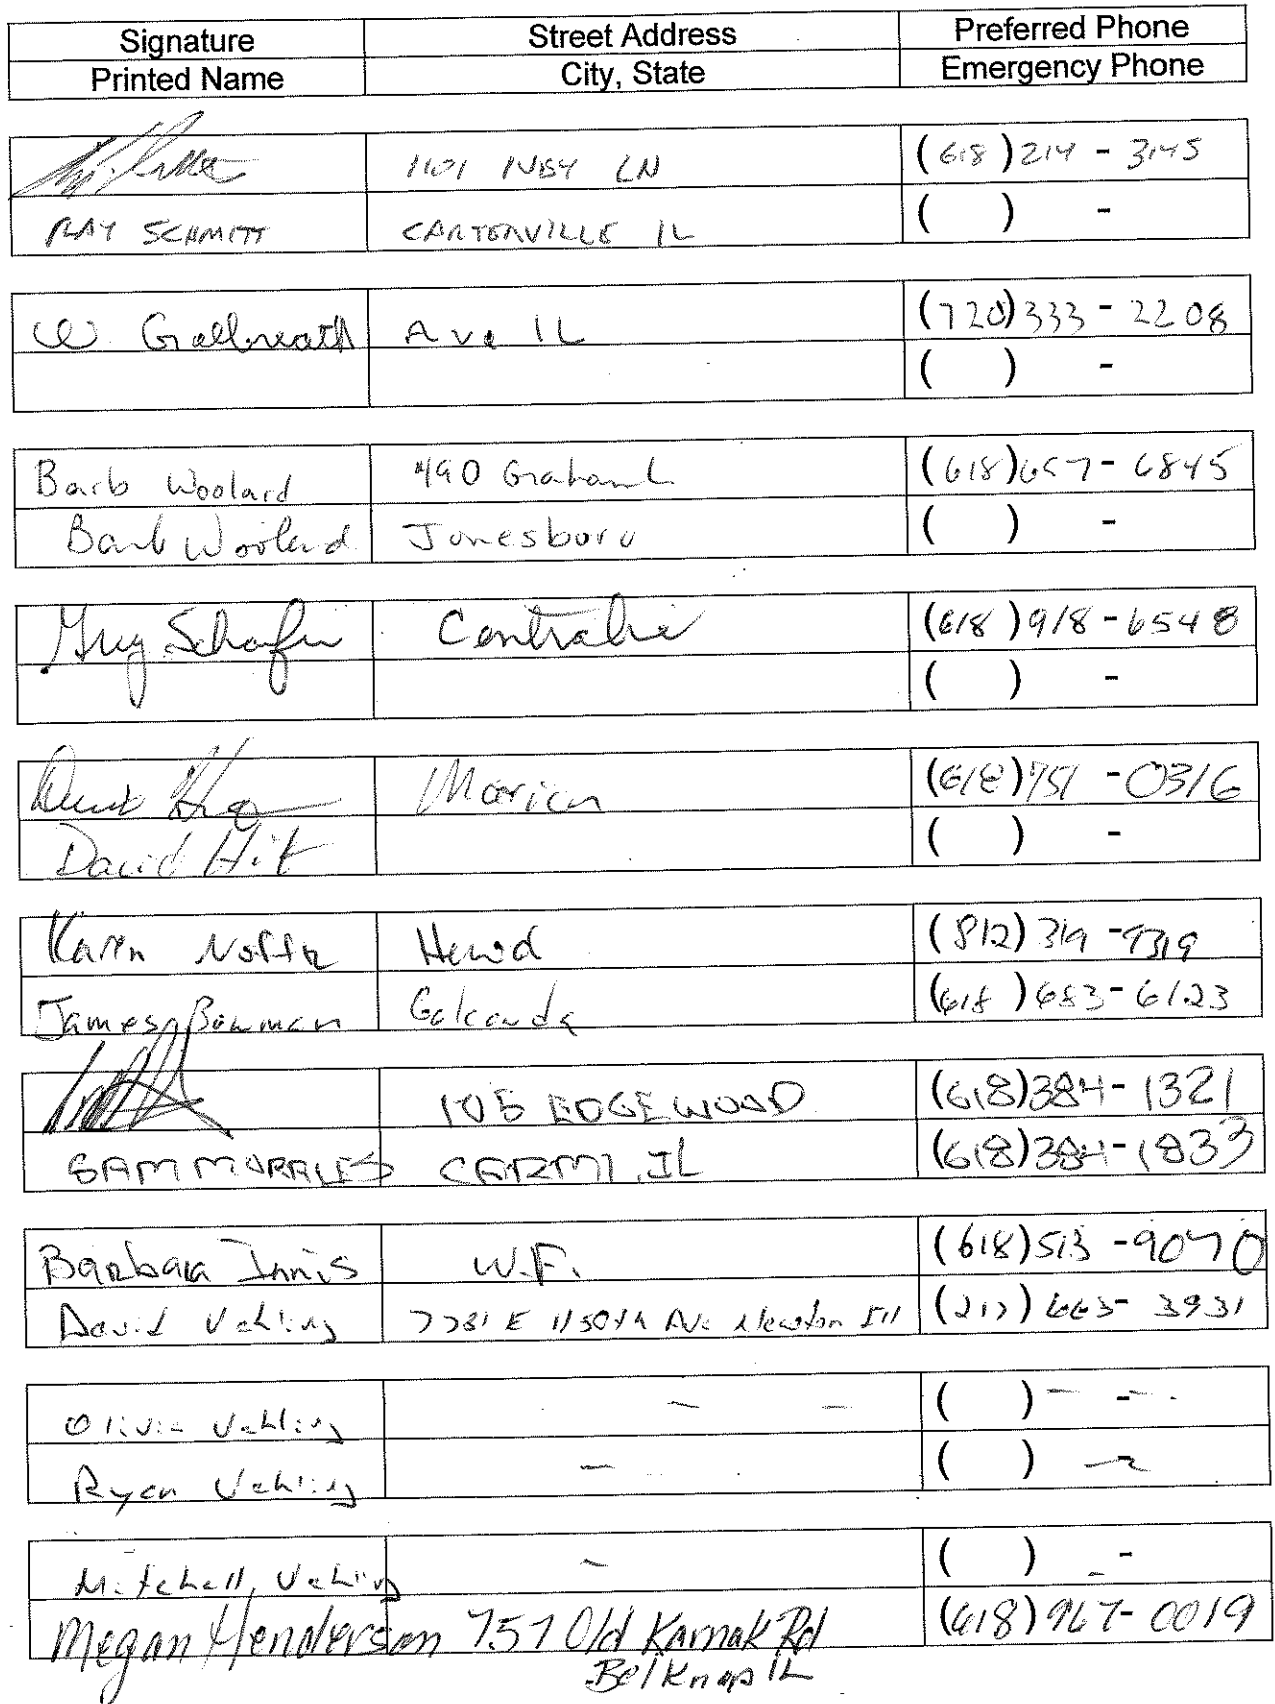 Signature Street Address Preferred Phone
Printed Name City, State Emergency Phone
1101 LN (618) 214 - 3145
RAY SCHMITT CARTERVILLE IL ( ) -
W. Galbreath Ava IL (720) 333 - 2208
( ) -
Barb Woolard 490 Graham L (618) 657 - 6845
Barb Woolard Jonesboro ( ) -
Greg Schafer Centralia (618) 918 - 6548
( ) -
David Marion (618) 751 - 0316
David Hit ( ) -
Karen (812) 319 - 9319
James Bowman Golconda (618) 683 - 6123
105 EDGEWOOD (618) 384 - 1321
SAM MORALES CARMI, IL (618) 384 - 1833
Barbara Innis W.F. (618) 513 - 9070
David Vehling 7781 E 1150th Ave Newton Ill (217) 663 - 3931
Olivia Vehling - - ( ) - - -
Ryan Vehling - ( ) -
Mitchell Vehling - ( ) - -
Megan Henderson 757 Old Karnak Rd (618) 967 - 0019
Belknap IL